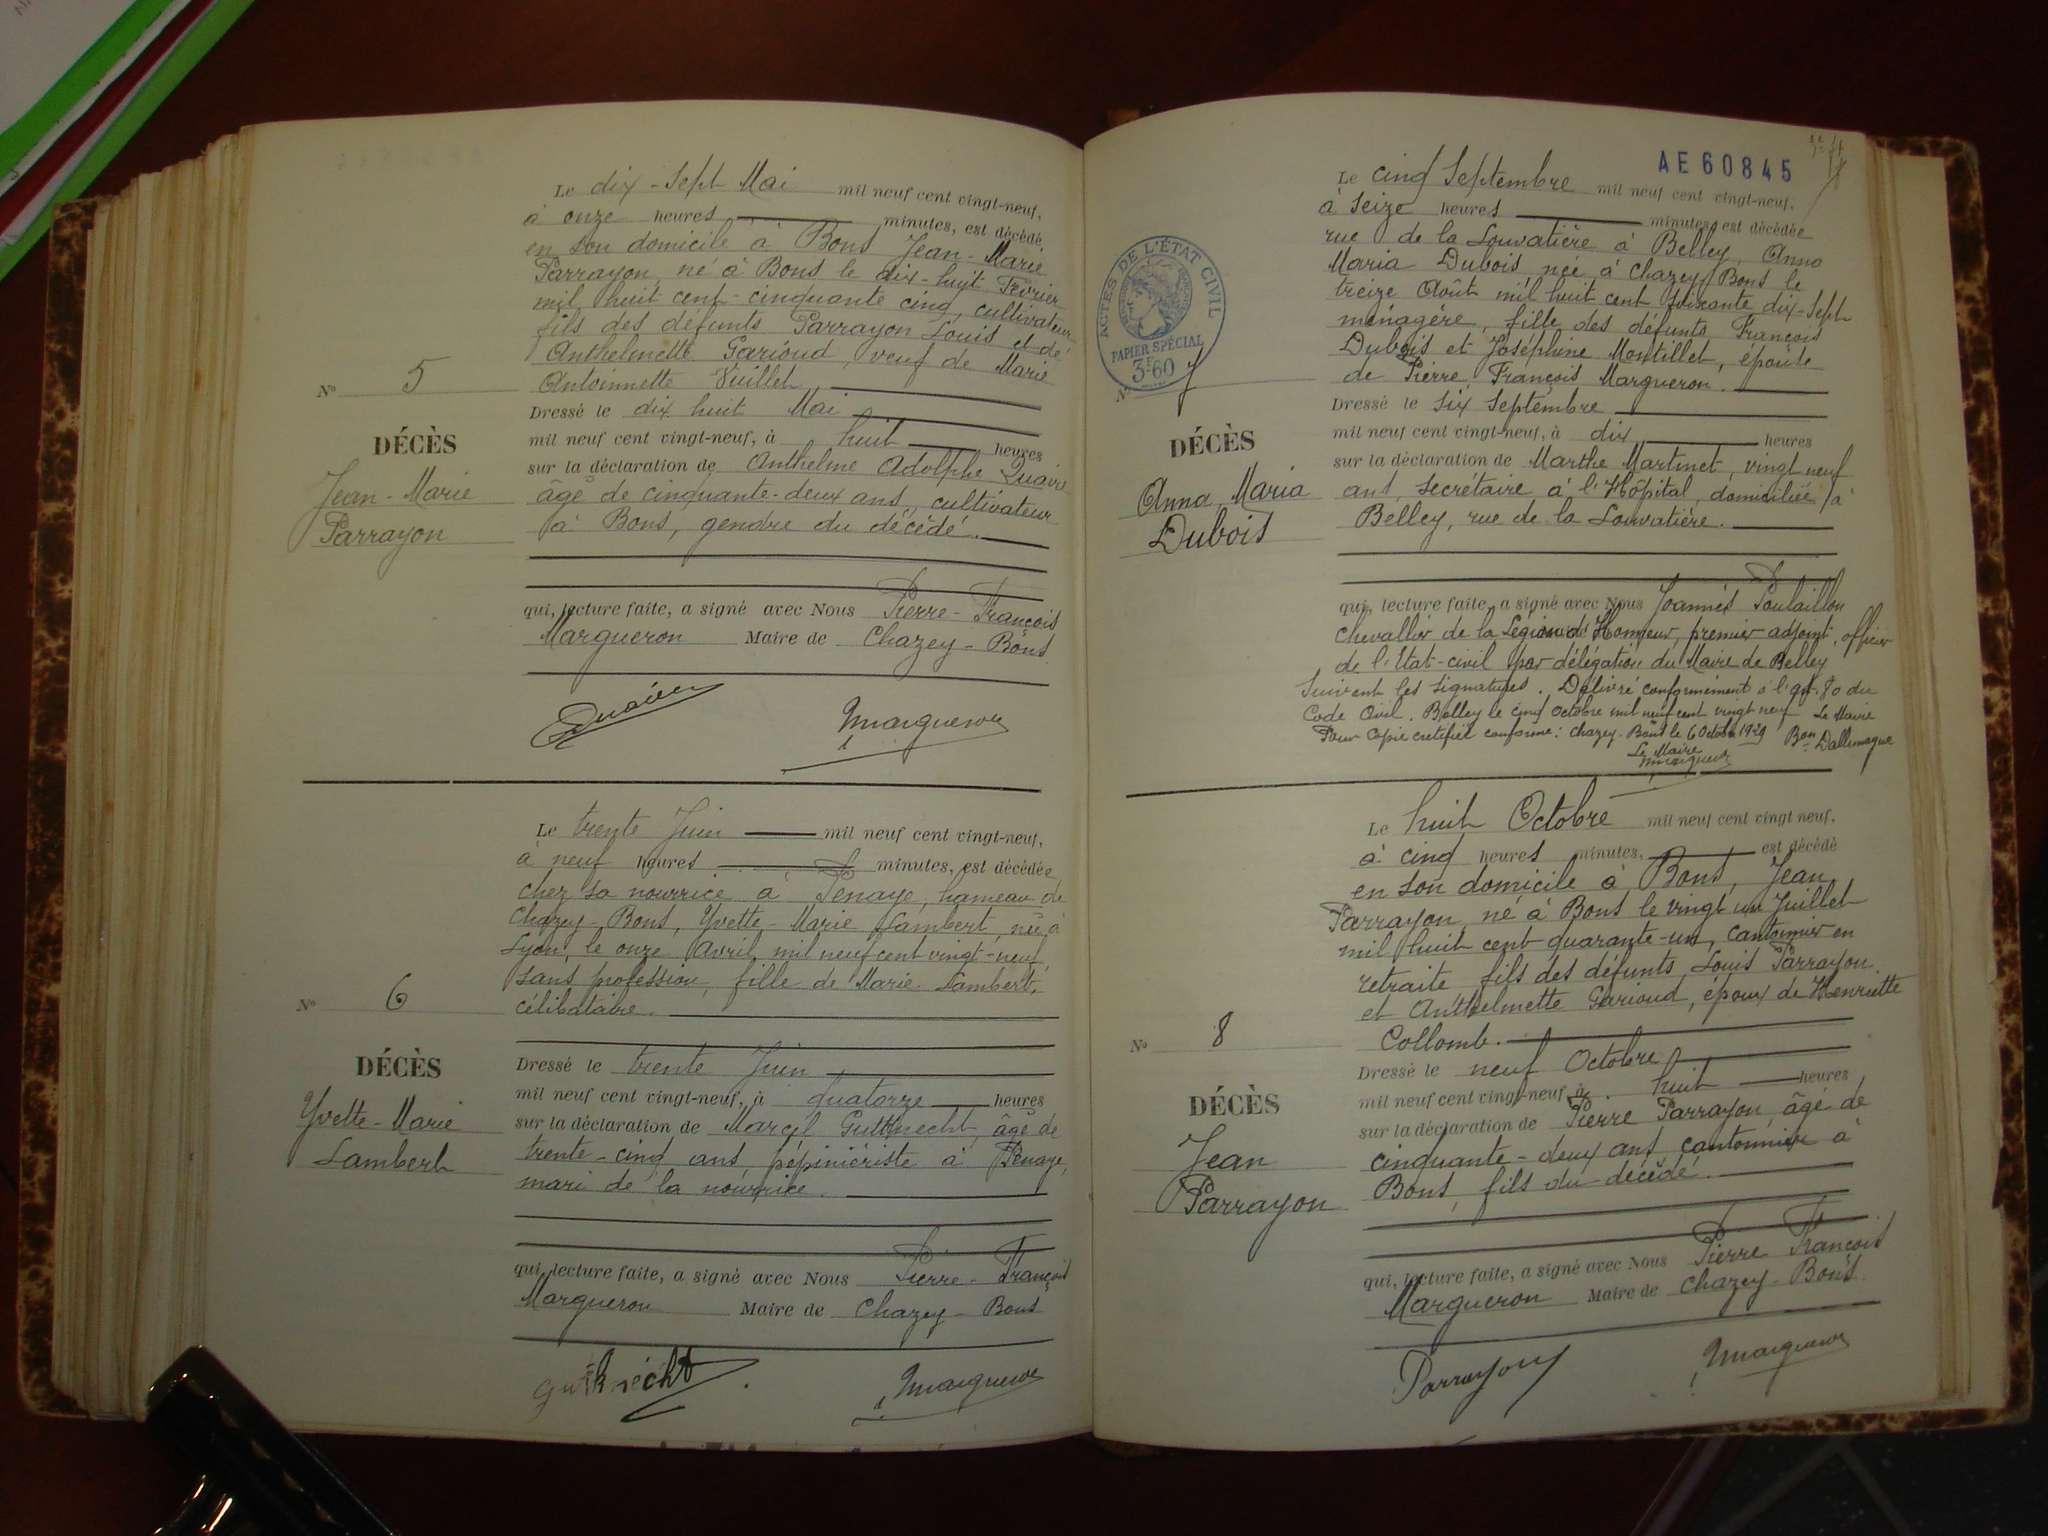 Le dix-sept Mai mil neuf cent vingt-neuf,
à onze heures minutes, est décédé
en son domicile à Bons Jean-Marie
Parrayon, né à Bons le dix-huit Février
mil huit cent-cinquante cinq, cultivateur
fils des défunts Parrayon Louis et de
Anthelmette Garioud, veuf de Marie
Antoinnette Vuillet
No 5
DÉCÈS
Jean-Marie
Parrayon
Dressé le dix huit Mai
mil neuf cent vingt-neuf, à huit heures
sur la déclaration de Anthelme Adolphe Quaire
âgé de cinquante-deux ans, cultivateur
à Bons, gendre du décédé.
qui, lecture faite, a signé avec Nous Pierre-François
Margueron Maire de Chazey-Bons
Margueron
Le trente Juin mil neuf cent vingt-neuf,
à neuf heures minutes, est décédée
chez sa nourrice à Penaye, hameau de
Chazey-Bons, Yvette-Marie Lambert, née à
Lyon, le onze Avril mil neuf cent vingt-neuf,
sans profession, fille de Marie Lambert,
célibataire.
No 6
DÉCÈS
Yvette-Marie
Lambert
Dressé le trente Juin
mil neuf cent vingt-neuf, à quatorze heures
sur la déclaration de Marcel Guttknecht, âgé de
trente-cinq ans, pépiniériste à Penaye,
mari de la nourrice.
qui, lecture faite, a signé avec Nous Pierre-François
Margueron Maire de Chazey-Bons
Gutknecht Margueron
AE60845
Le cinq Septembre mil neuf cent vingt-neuf,
à seize heures minutes, est décédée
rue de la Louvatière à Belley, Anna
Maria Dubois, née à Chazey Bons le
treize Août mil huit cent soixante dix-sept
ménagère, fille des défunts François
Dubois et Joséphine Montillet, épouse
de Pierre François Margueron.
ACTES DE L'ÉTAT CIVIL
PAPIER SPÉCIAL
3F60
No 7
DÉCÈS
Anna Maria
Dubois
Dressé le six Septembre
mil neuf cent vingt-neuf, à dix heures
sur la déclaration de Marthe Martinet, vingt neuf
ans, secrétaire à l'Hôpital, domiciliée à
Belley, rue de la Louvatière.
qui, lecture faite, a signé avec Nous Joannès Poulaillon
Chevallier de la Légion d'Honneur, premier adjoint, officier
de l'Etat-civil par délégation du Maire de Belley
Suivent les signatures. Délivré conformément à l'art. 80 du
Code Civil. Belley le cinq Octobre mil neuf cent vingt neuf Le Maire
Pour Copie certifiée conforme: Chazey-Bons le 6 Octobre 1929 Bon Dallemagne
Le Maire
Margueron
Le huit Octobre mil neuf cent vingt-neuf,
à cinq heures minutes, est décédé
en son domicile à Bons, Jean
Parrayon, né à Bons le vingt un Juillet
mil huit cent quarante-un, cantonnier en
retraite fils des défunts Louis Parrayon
et Anthelmette Garioud, époux de Henriette
Collomb.
No 8
DÉCÈS
Jean
Parrayon
Dressé le neuf Octobre
mil neuf cent vingt-neuf à huit heures
sur la déclaration de Pierre Parrayon, âgé de
cinquante-deux ans, cantonnier à
Bons, fils du décédé.
qui, lecture faite, a signé avec Nous Pierre François
Margueron Maire de Chazey-Bons
Parrayon Margueron